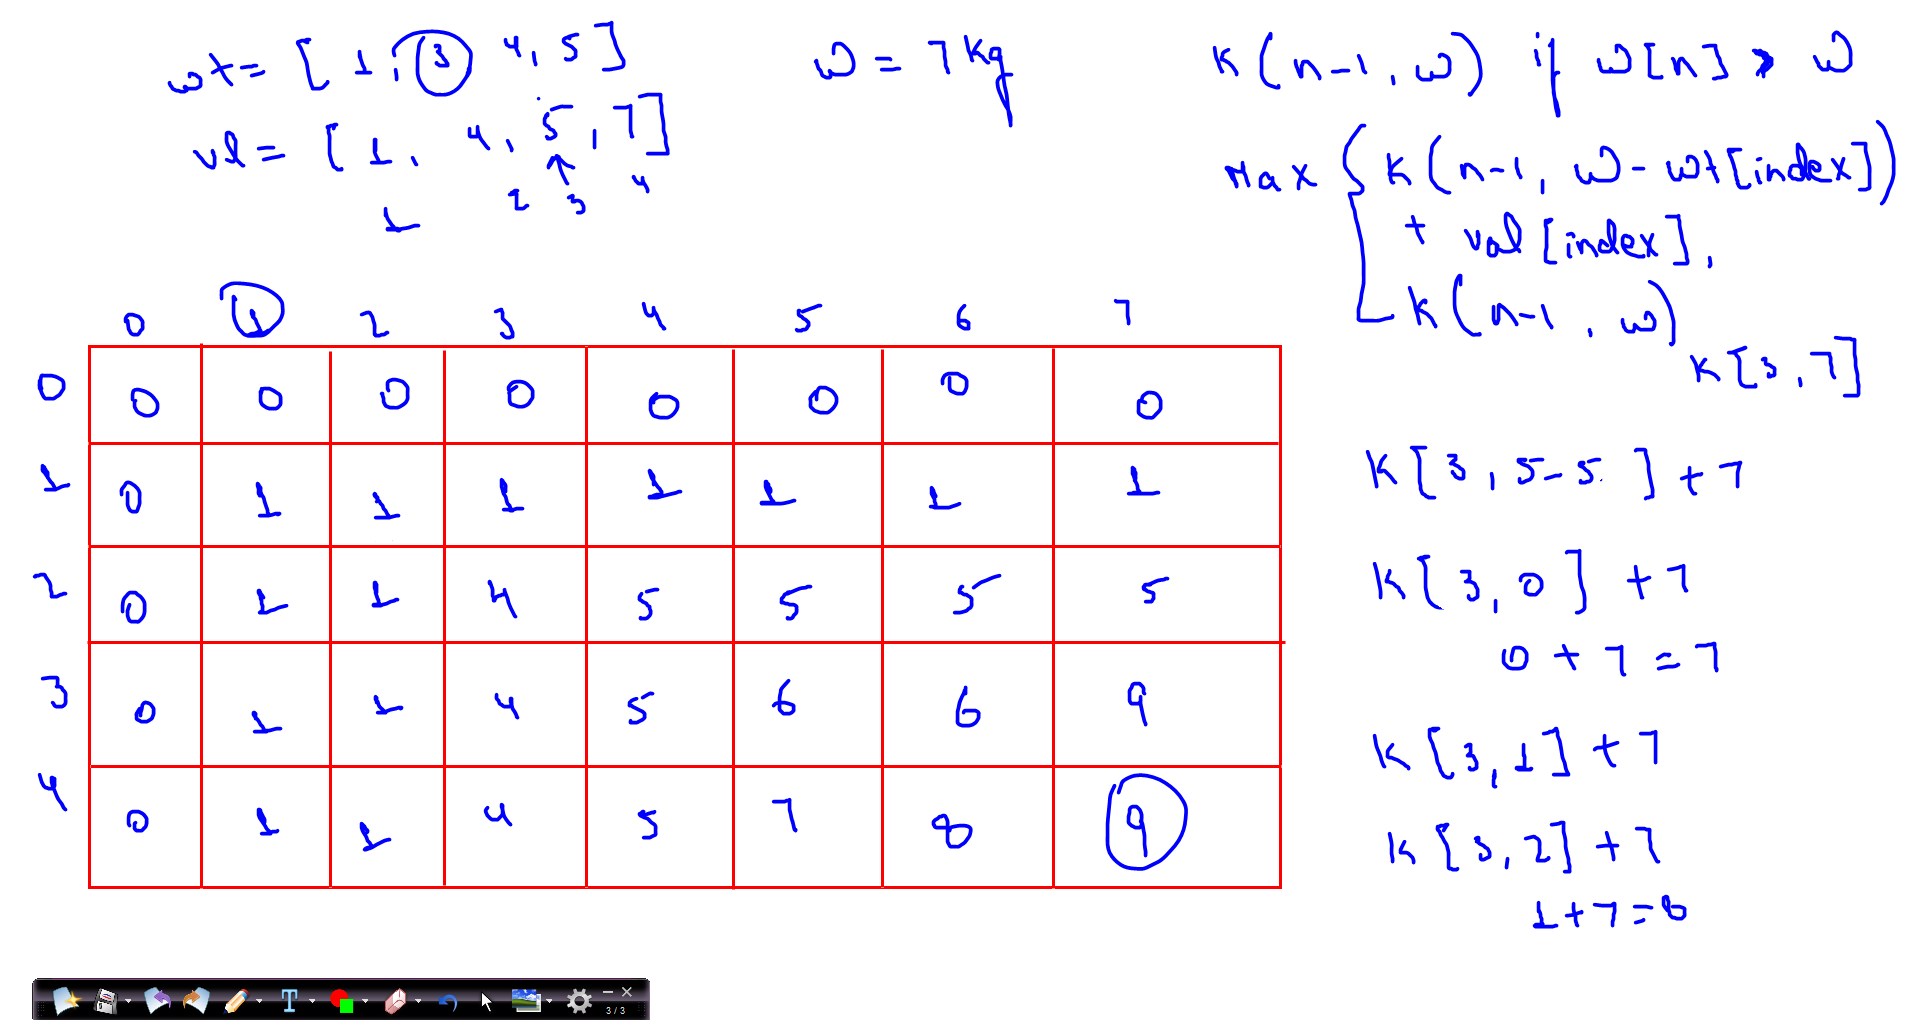 wt = [ 1, 3 4, 5 ]
w = 7 kg
vl = [ 1, 4, 5, 7 ]
1 2 3 4
K ( n-1, w ) if w [ n ] > w
Max { K ( n-1, w - wt [ index ] )
+ val [ index ] ,
K ( n-1, w )
K [ 3, 7 ]
0 1 2 3 4 5 6 7
0 0 0 0 0 0 0 0 0
1 0 1 1 1 1 1 1 1
2 0 1 1 4 5 5 5 5
3 0 1 1 4 5 6 6 9
4 0 1 1 4 5 7 8 9
K [ 3, 5-5 ] + 7
K [ 3, 0 ] + 7
0 + 7 = 7
K [ 3, 1 ] + 7
K [ 3, 2 ] + 7
1 + 7 = 8
T
3 / 3